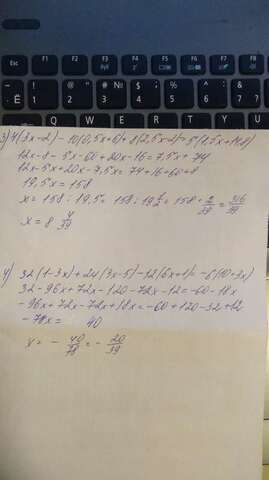 Esc
3) 4(3x-2)-10(0,5x+6)+8(2,5x-2)=5(1,5x+14,8)
12x-8-5x-60+20x-16=7,5x+74
12x-5x+20x-7,5x=74+16+60+8
19,5x=158
x=158:19,5=158:19 1/2=158·2/39=316/39
x=8 4/39
4) 32(1-3x)+24(3x-5)-12(6x+1)=-6(10+3x)
32-96x+72x-120-72x-12=-60-18x
-96x+72x-72x+18x=-60+120-32+12
-78x= 40
x=-40/78=-20/39